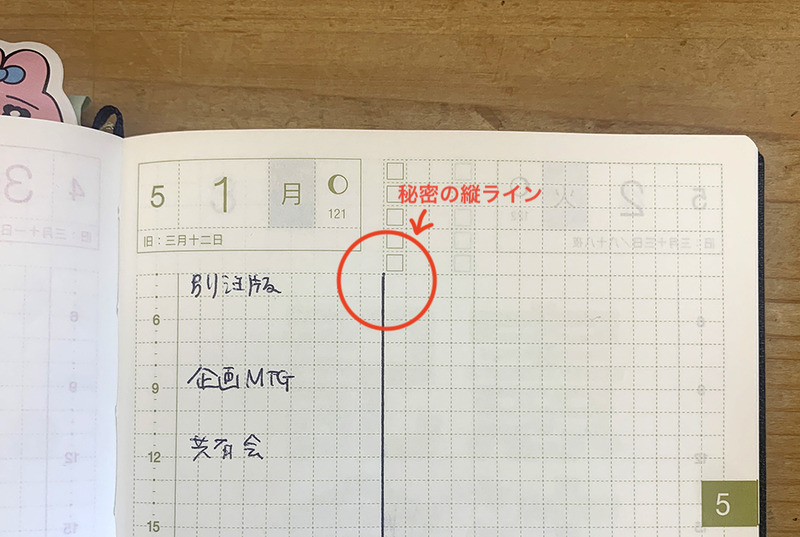 5 1 月
121
旧：三月十二日
秘密の縦ライン
別注版
6
企画MTG
9
共有会
12
15
5